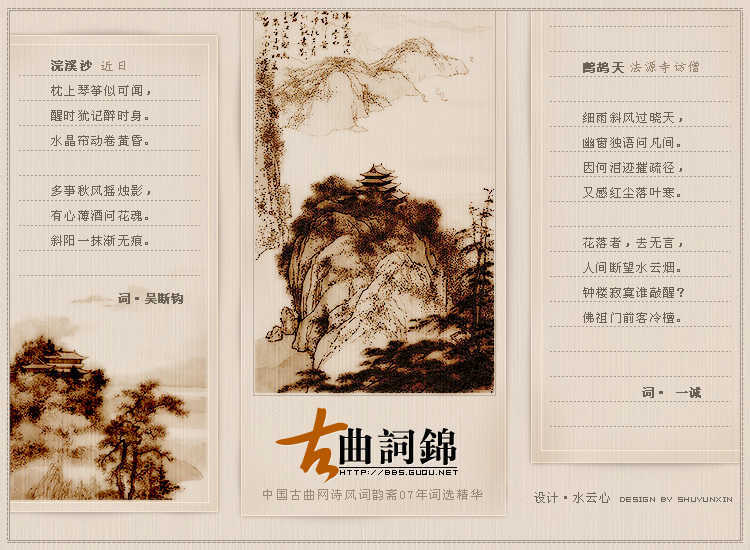 浣溪沙 近日
枕上琴筝似可闻，
醒时犹记醉时身。
水晶帘动卷黄昏。
多事秋风摇烛影，
有心薄酒问花魂。
斜阳一抹渐无痕。
词·吴断钩
古曲詞錦
HTTP://BBS.GUQU.NET
中国古曲网诗风词韵斋07年词选精华
鹧鸪天 法源寺访僧
细雨斜风过晓天，
幽窗独语问凡间。
因何泪迹摧疏径，
又感红尘落叶寒。
花落者，去无言，
人间断望水云烟。
钟楼寂寞谁敲醒？
佛祖门前客冷檀。
词· 一诚
设计·水云心 DESIGN BY SHUYUNXIN